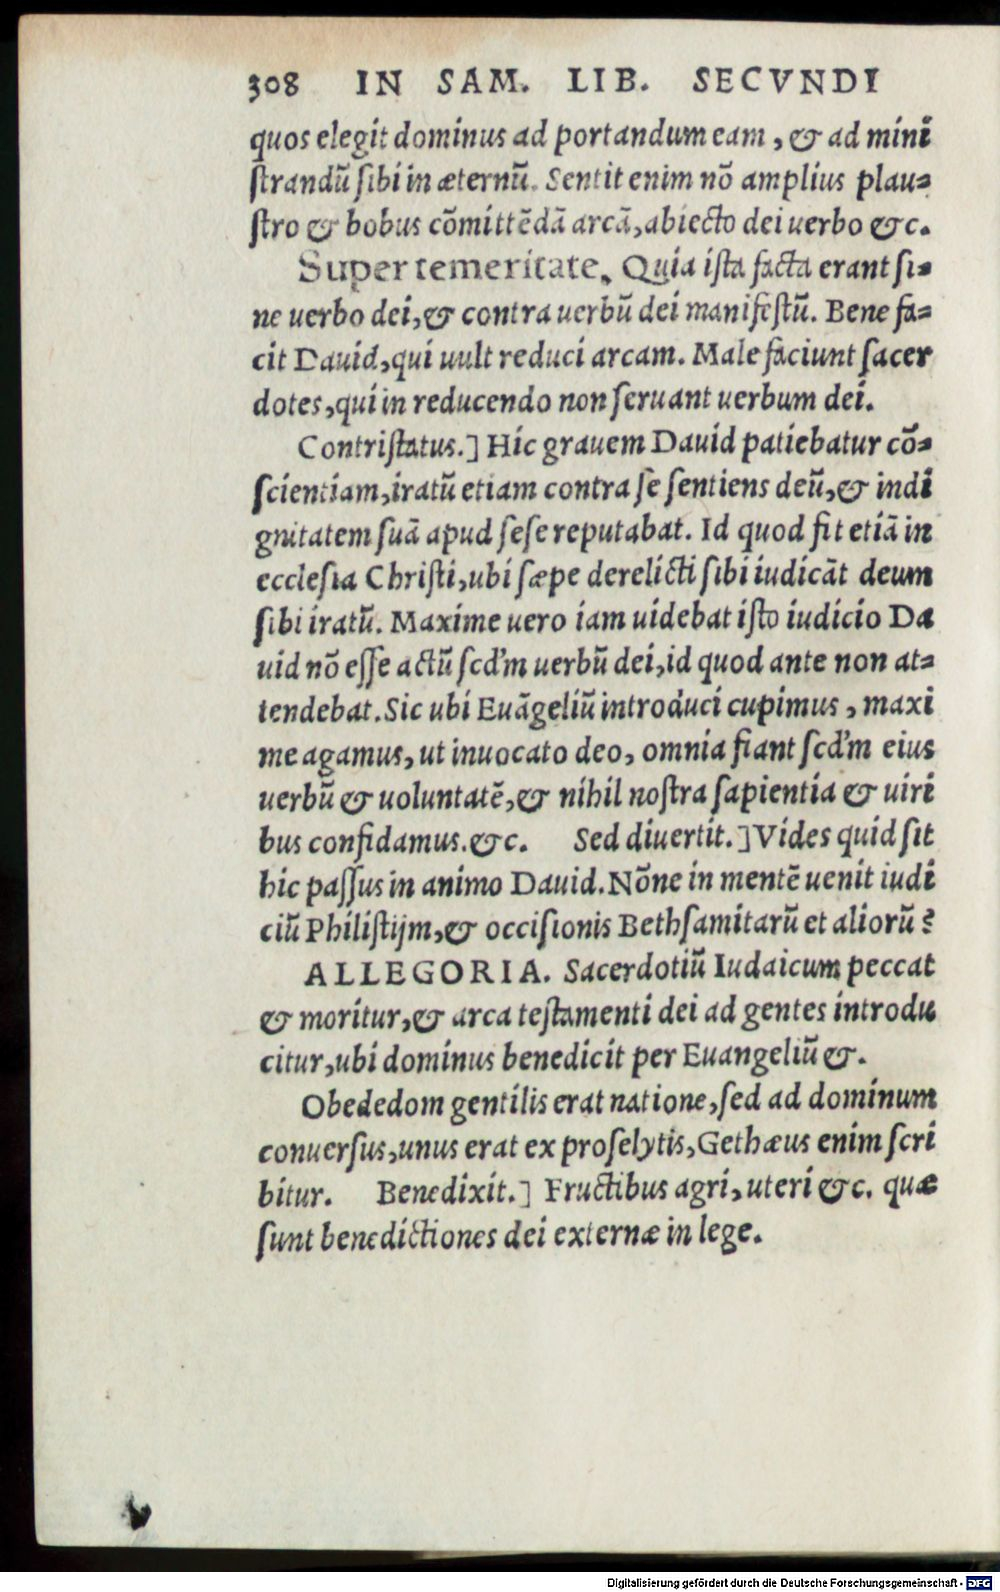 308 IN SAM. LIB. SECVNDI
quos elegit dominus ad portandum eam, & ad mini
ſtrandū ſibi in æternū. Sentit enim nō amplius plau⸗
ſtro & bobus cōmittēdā arcā, abiecto dei uerbo &c.
Super temeritate. Quia iſta facta erant ſi⸗
ne uerbo dei, & contra uerbū dei manifeſtū. Bene fa⸗
cit Dauid, qui uult reduci arcam. Male faciunt ſacer
dotes, qui in reducendo non ſeruant uerbum dei.
Contriſtatus.] Hic grauem Dauid patiebatur cō⸗
ſcientiam, iratū etiam contra ſe ſentiens deū, & indi
gnitatem ſuā apud ſeſe reputabat. Id quod fit etiā in
eccleſia Chriſti, ubi ſæpe derelicti ſibi iudicāt deum
ſibi iratū. Maxime uero iam uidebat iſto iudicio Da
uid nō eſſe actū ſcd'm uerbū dei, id quod ante non at⸗
tendebat. Sic ubi Euāgeliū introduci cupimus, maxi
me agamus, ut inuocato deo, omnia fiant ſcd'm eius
uerbū & uoluntatē, & nihil noſtra ſapientia & uiri
bus confidamus. &c. Sed diuertit.] Vides quid ſit
hic paſſus in animo Dauid. Nōne in mentē uenit iudi
ciū Philiſtijm, & occiſionis Bethſamitarū et aliorū?
ALLEGORIA. Sacerdotiū Iudaicum peccat
& moritur, & arca teſtamenti dei ad gentes introdu
citur, ubi dominus benedicit per Euangeliū &.
Obededom gentilis erat natione, ſed ad dominum
conuerſus, unus erat ex proſelytis, Gethæus enim ſcri
bitur. Benedixit.] Fructibus agri, uteri &c. quæ
ſunt benedictiones dei externæ in lege.
Digitalisierung gefördert durch die Deutsche Forschungsgemeinschaft - DFG